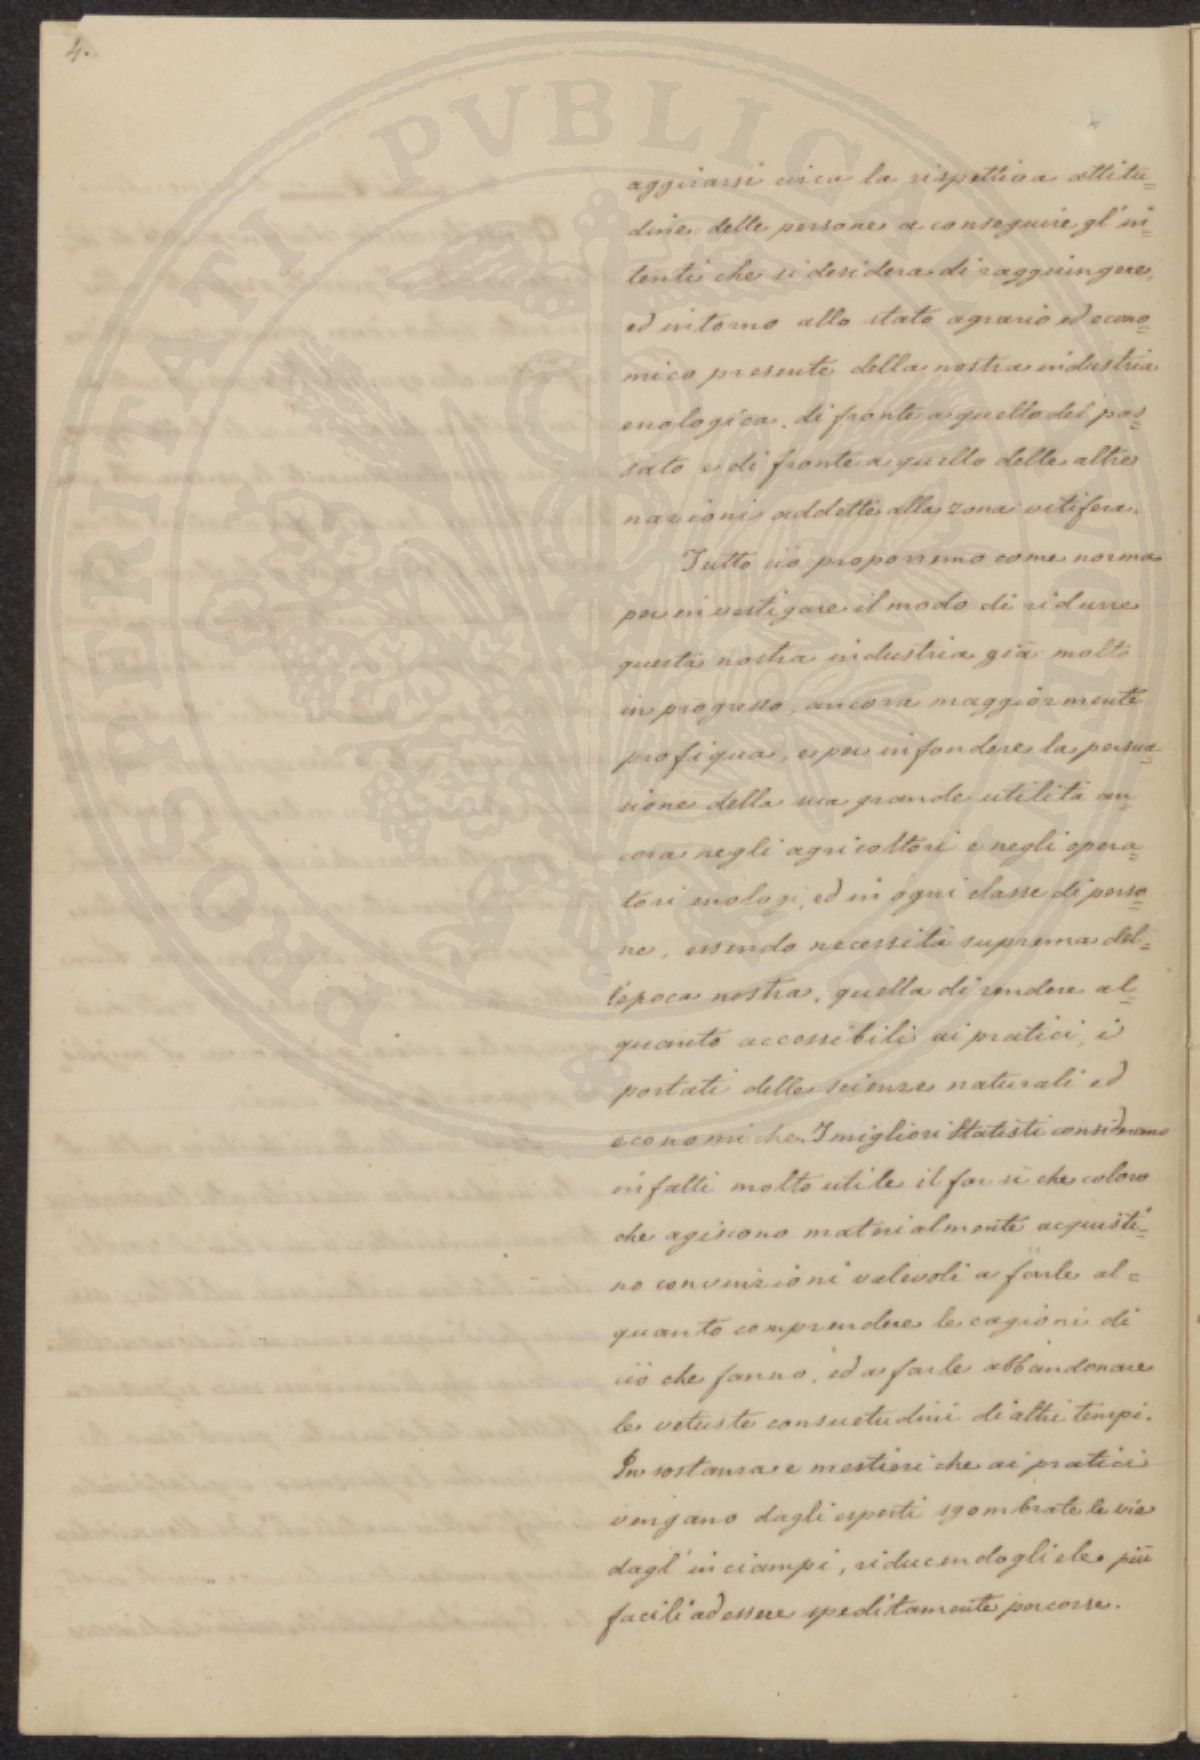 4.
PROSPERITATI PVBLICAE
aggirarsi circa la rispettiva attitu=
dine delle persone a conseguire gl'in=
tenti che si desidera di raggiungere,
ed intorno allo stato agrario ed econo=
mico presente della nostra industria
enologica, di fronte a quello del pas=
sato e di fronte a quello delle altre
nazioni addette alla zona vitifera.
Tutto ciò proporremo come norma
per investigare il modo di ridurre
questa nostra industria già molto
in progresso, ancora maggiormente
profiqua, e per infondere la persua=
sione della sua grande utilità an=
cora negli agricoltori e negli opera=
tori enologi, ed in ogni classe di perso=
ne, essendo necessità suprema del=
l'epoca nostra, quella di rendere al=
quanto accessibili ai pratici, i
portati delle scienze naturali ed
economiche. I migliori Statisti considerano
infatti molto utile il far sì che coloro
che agiscono materialmente acquisti=
no convinzioni valevoli a farle al=
quanto comprendere le cagioni di
ciò che fanno, ed a farle abbandonare
le vetuste consuetudini di altri tempi.
In sostanza e mestieri che ai pratici
vengano dagli esperti sgombrate le vie
dagl'inciampi, riducendogliele più
facili ad essere speditamente percorse.